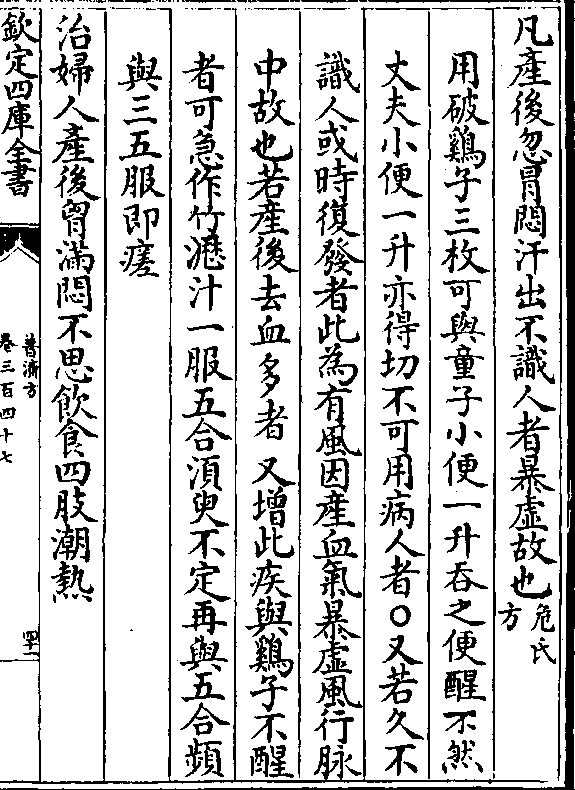 凡產後忽冒悶汗出不識人者暴虛故也危氏方
用破雞子三枚可與童子小便一升吞之便醒不然
丈夫小便一升亦得切不可用病人者○又若久不
識人或時復發者此為有風因產血氣暴虛風行脉
中故也若產後去血多者又增此疾與雞子不醒
者可急作竹瀝汁一服五合須臾不定再與五合頻
與三五服即瘥
治婦人產後胷滿悶不思飲食四肢潮熱
欽定四庫全書
普濟方
卷三百四十七